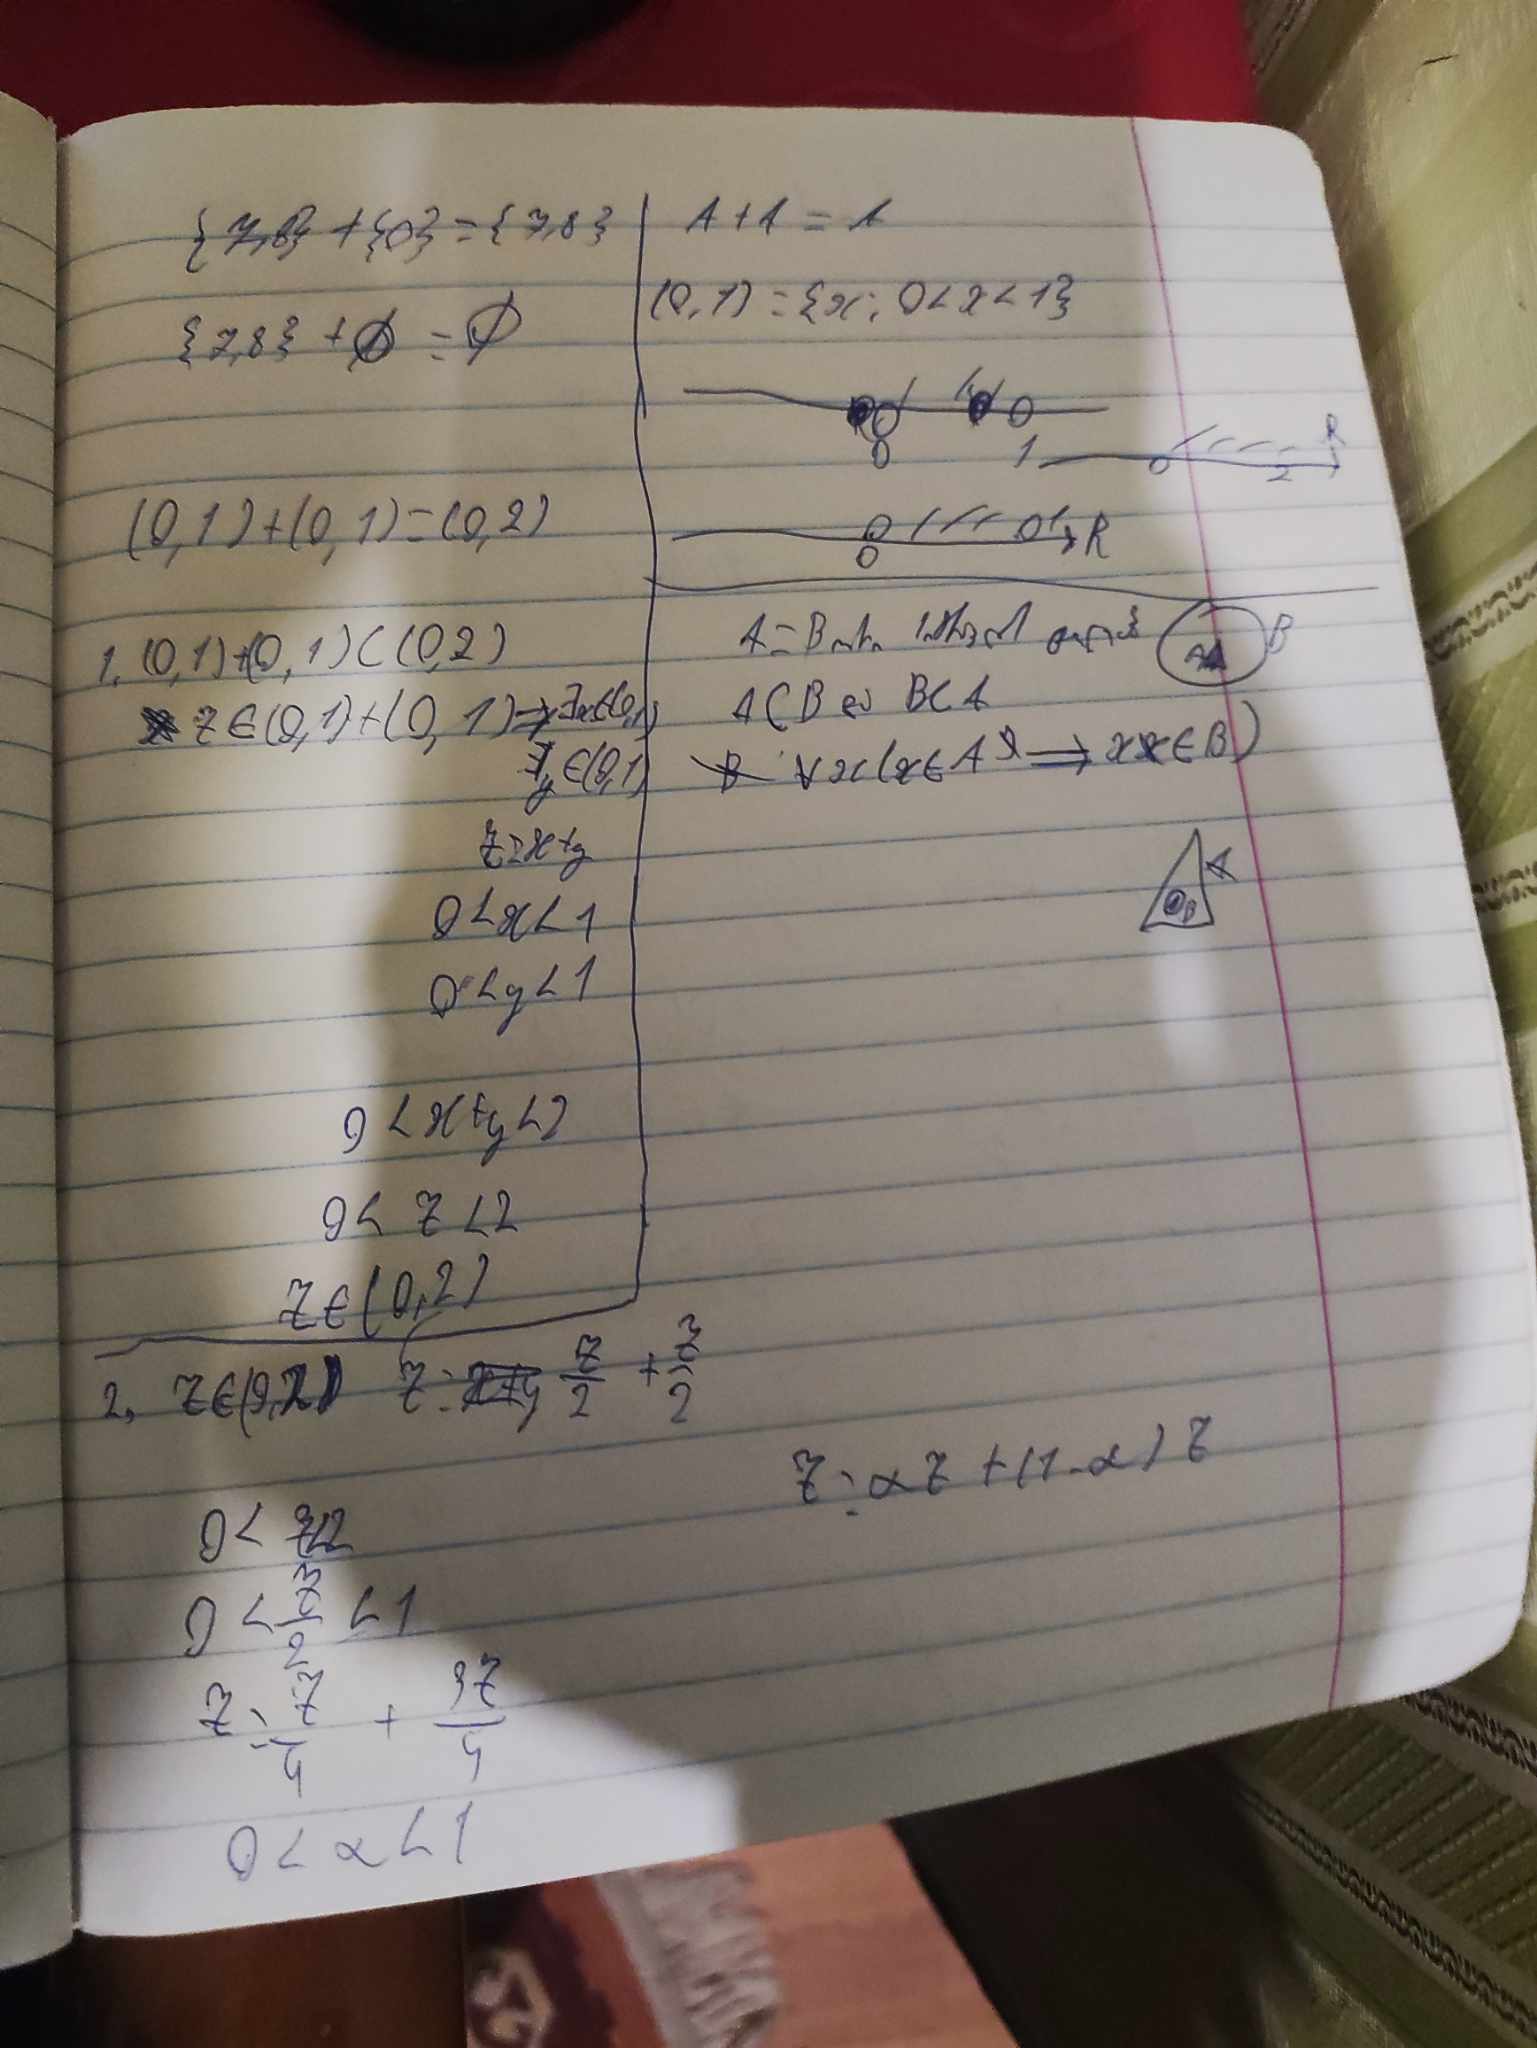 {7,8} + {0} = {7,8}
{7,8} + ∅ = ∅
(0,1)+(0,1)=(0,2)
1. (0,1)+(0,1) ⊂ (0,2)
z∈(0,1)+(0,1) ⇒ ∃x∈(0,1)
∃y∈(0,1)
z=x+y
0<x<1
0<y<1
0<x+y<2
0<z<2
z∈(0,2)
A+A = A
(0,1) = {x: 0<x<1}
0 1
0 2 R
0 R
A=B
A B
A⊂B B⊂A
∀x(x∈A ⇒ x∈B)
A
B
2. z∈(0,2) z= z/2 + z/2
z=αz+(1-α)z
0<z<2
0<z/2<1
z= z/4 + 3z/4
0<α<1